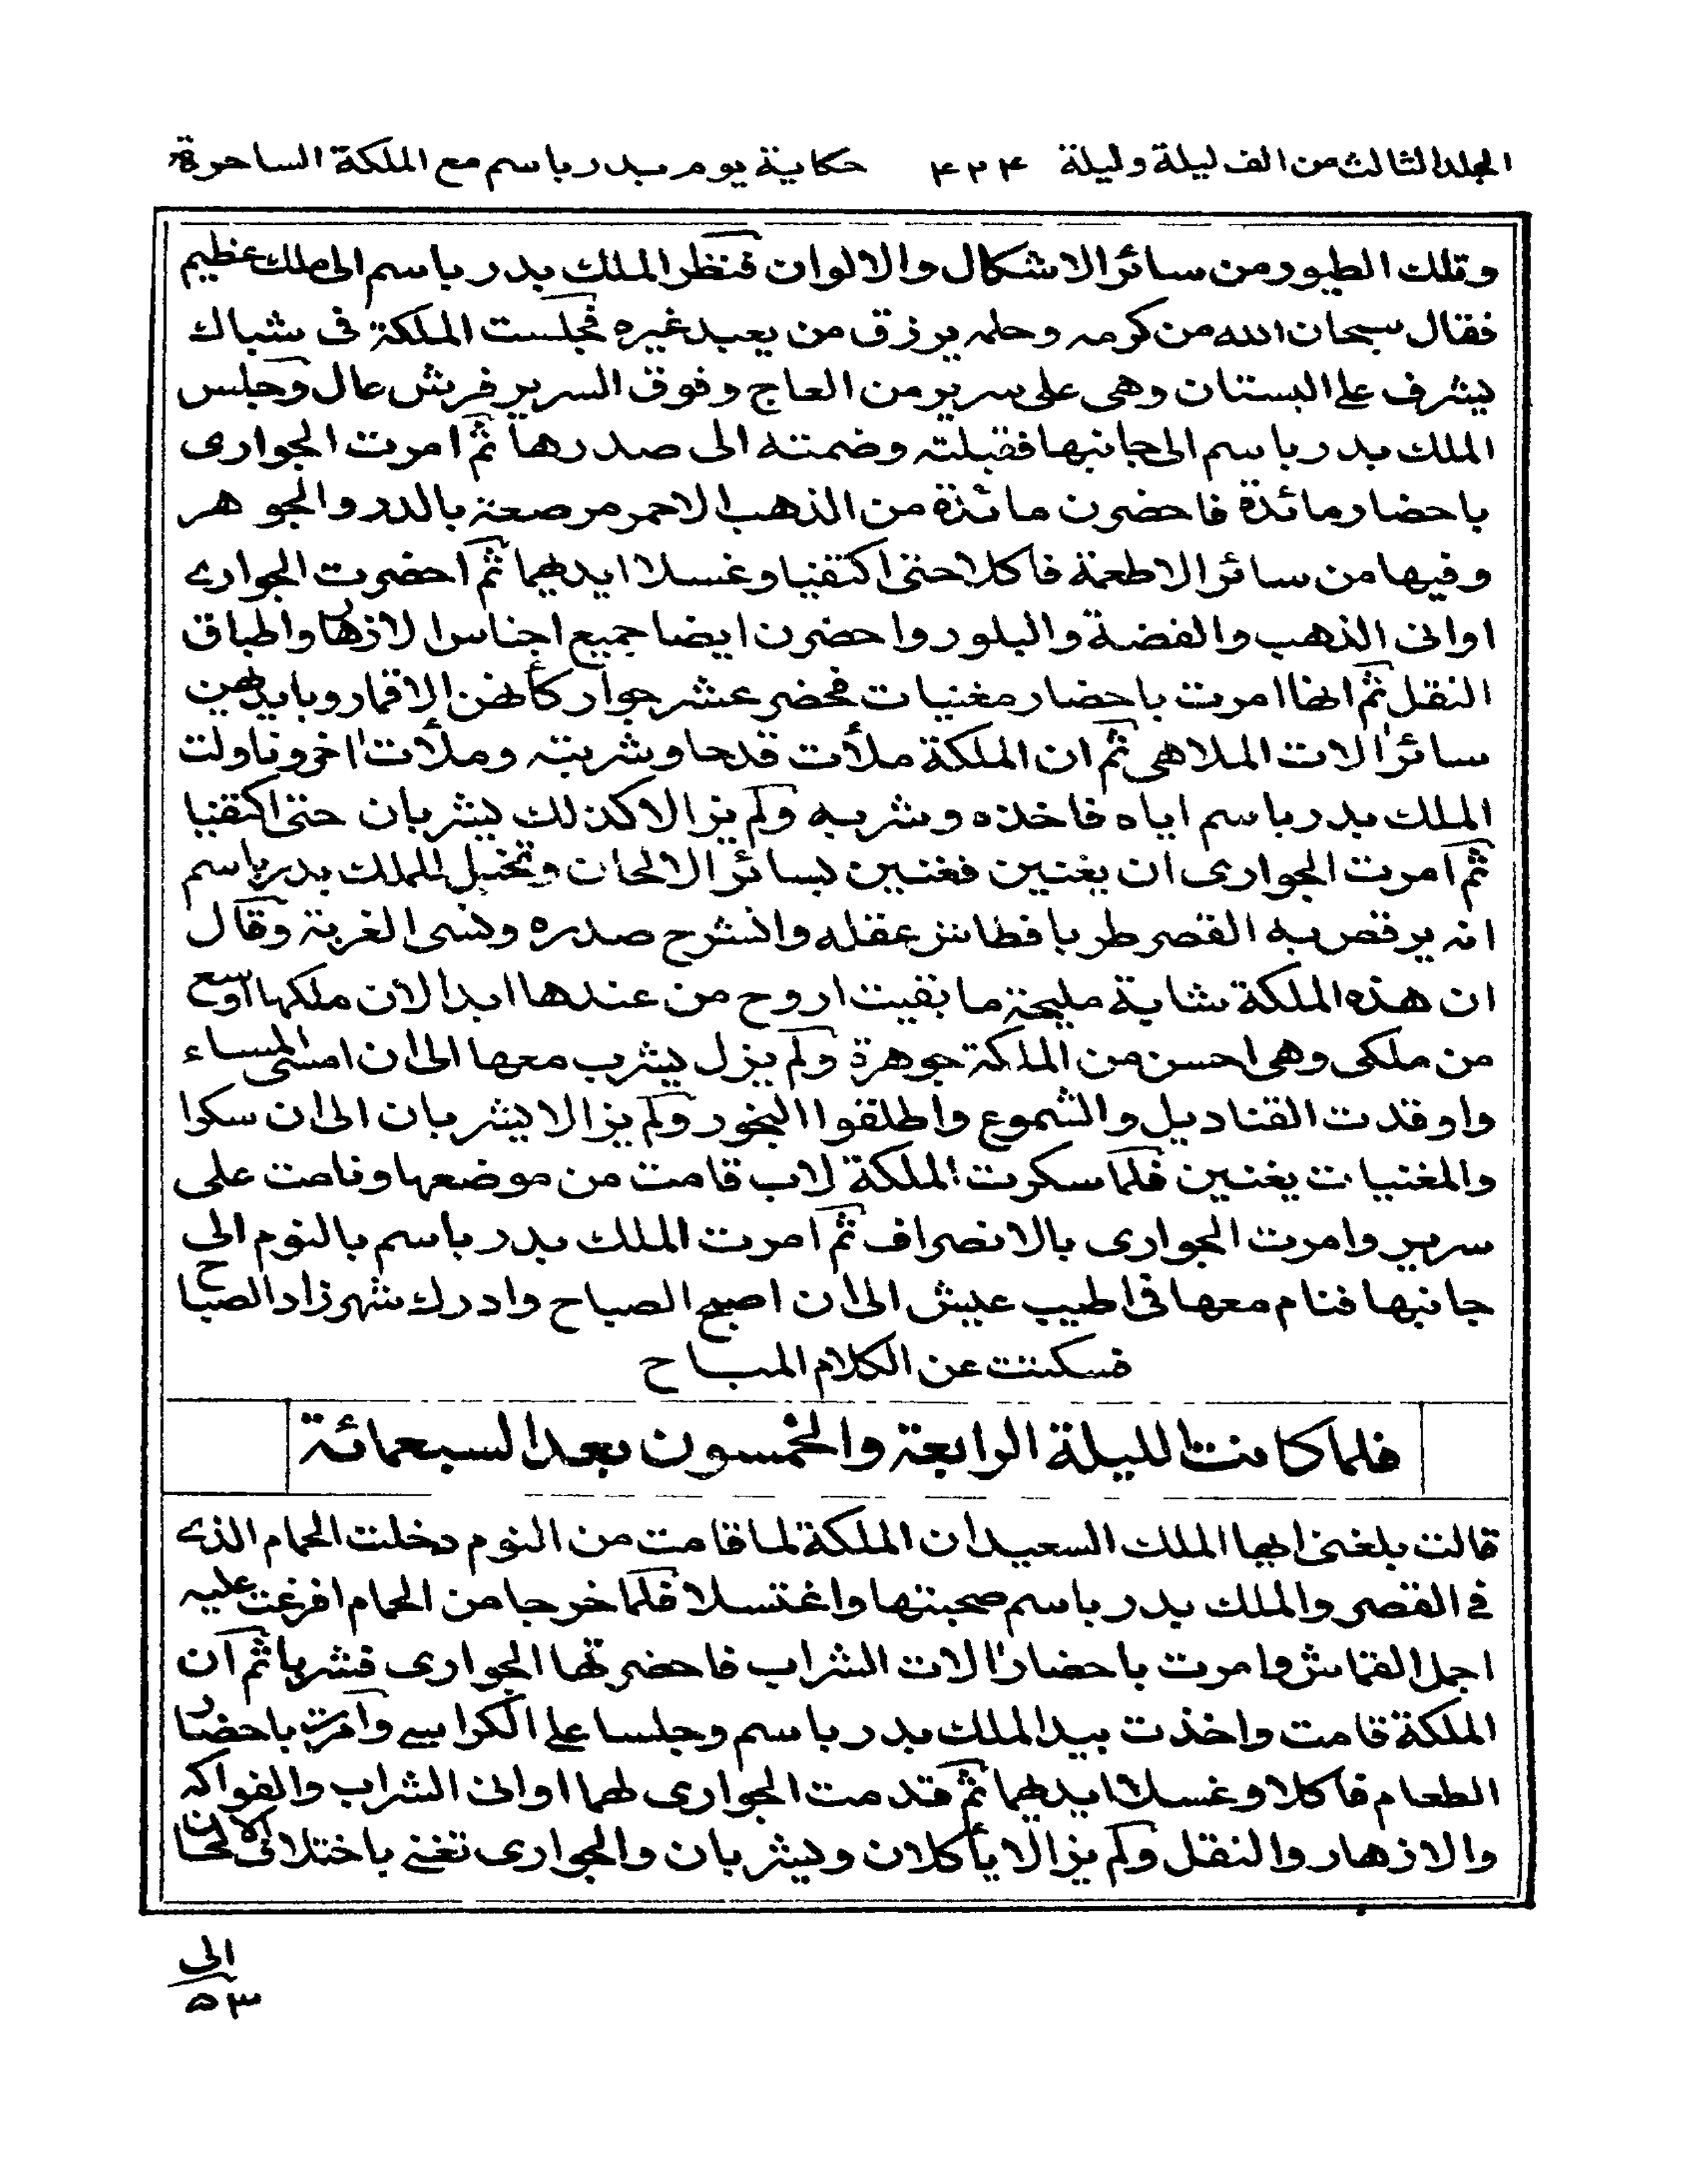 المجلد الثالث من الف ليلة وليلة ۴۲۴ حكاية يوم بدر باسم مع الملكة الساحرة
وتلك الطيور من سائر الاشكال والالوان فنظر الملك بدر باسم الى ملك عظيم
فقال سبحان الله من كرمه وحلمه يرزق من يعبد غيره فجلست الملكة فى شباك
يشرف على البستان وهى على سرير من العاج وفوق السرير فرش عال وجلس
الملك بدر باسم الى جانبها فقبلته وضمته الى صدرها ثم امرت الجوارى
باحضار مائدة فاحضرن مائدة من الذهب الاحمر مرصعة بالدر والجوهر
وفيها من سائر الاطعمة فاكلا حتى اكتفيا وغسلا ايديهما ثم احضرت الجوارى
اوانى الذهب والفضة والبلور واحضرن ايضا جميع اجناس الازهار واطباق
النقل ثم انها امرت باحضار مغنيات فحضر عشر جوار كأنهن الاقمار وبايديهن
سائر الات الملاهى ثم ان الملكة ملأت قدحا وشربته وملأت اخر وناولت
الملك بدر باسم اياه فاخذه وشربه ولم يزالا كذلك يشربان حتى اكتفيا
ثم امرت الجوارى ان يغنين فغنين بسائر الالحان وتخيل للملك بدر باسم
انه يرقص به القصر طربا فطاش عقله وانشرح صدره ونسى الغربة وقال
ان هذه الملكة شابة مليحة ما بقيت اروح من عندها ابدا لان ملكها اوسع
من ملكى وهى احسن من الملكة جوهرة ولم يزل يشرب معها الى ان امسى المساء
واوقدت القناديل والشموع واطلقوا البخور ولم يزالا يشربان الى ان سكرا
والمغنيات يغنين فلما سكرت الملكة لاب قامت من موضعها ونامت على
سرير وامرت الجوارى بالانصراف ثم امرت الملك بدر باسم بالنوم الى
جانبها فنام معها فى اطيب عيش الى ان اصبح الصباح وادرك شهرزاد الصباح
فسكتت عن الكلام المباح
فلما كانت الليلة الرابعة والخمسون بعد السبعمائة
قالت بلغنى ايها الملك السعيد ان الملكة لما قامت من النوم دخلت الحمام الذى
فى القصر والملك بدر باسم صحبتها واغتسلا فلما خرجا من الحمام افرغت عليه
اجمل القماش وامرت باحضار الات الشراب فاحضرتها الجوارى فشربا ثم ان
الملكة قامت واخذت بيد الملك بدر باسم وجلسا على الكراسى وامرت باحضار
الطعام فاكلا وغسلا ايديهما ثم قدمت الجوارى لهما اوانى الشراب والفواكه
والازهار والنقل ولم يزالا يأكلان ويشربان والجوارى تغنى باختلاف الالحان
الى
۵۳